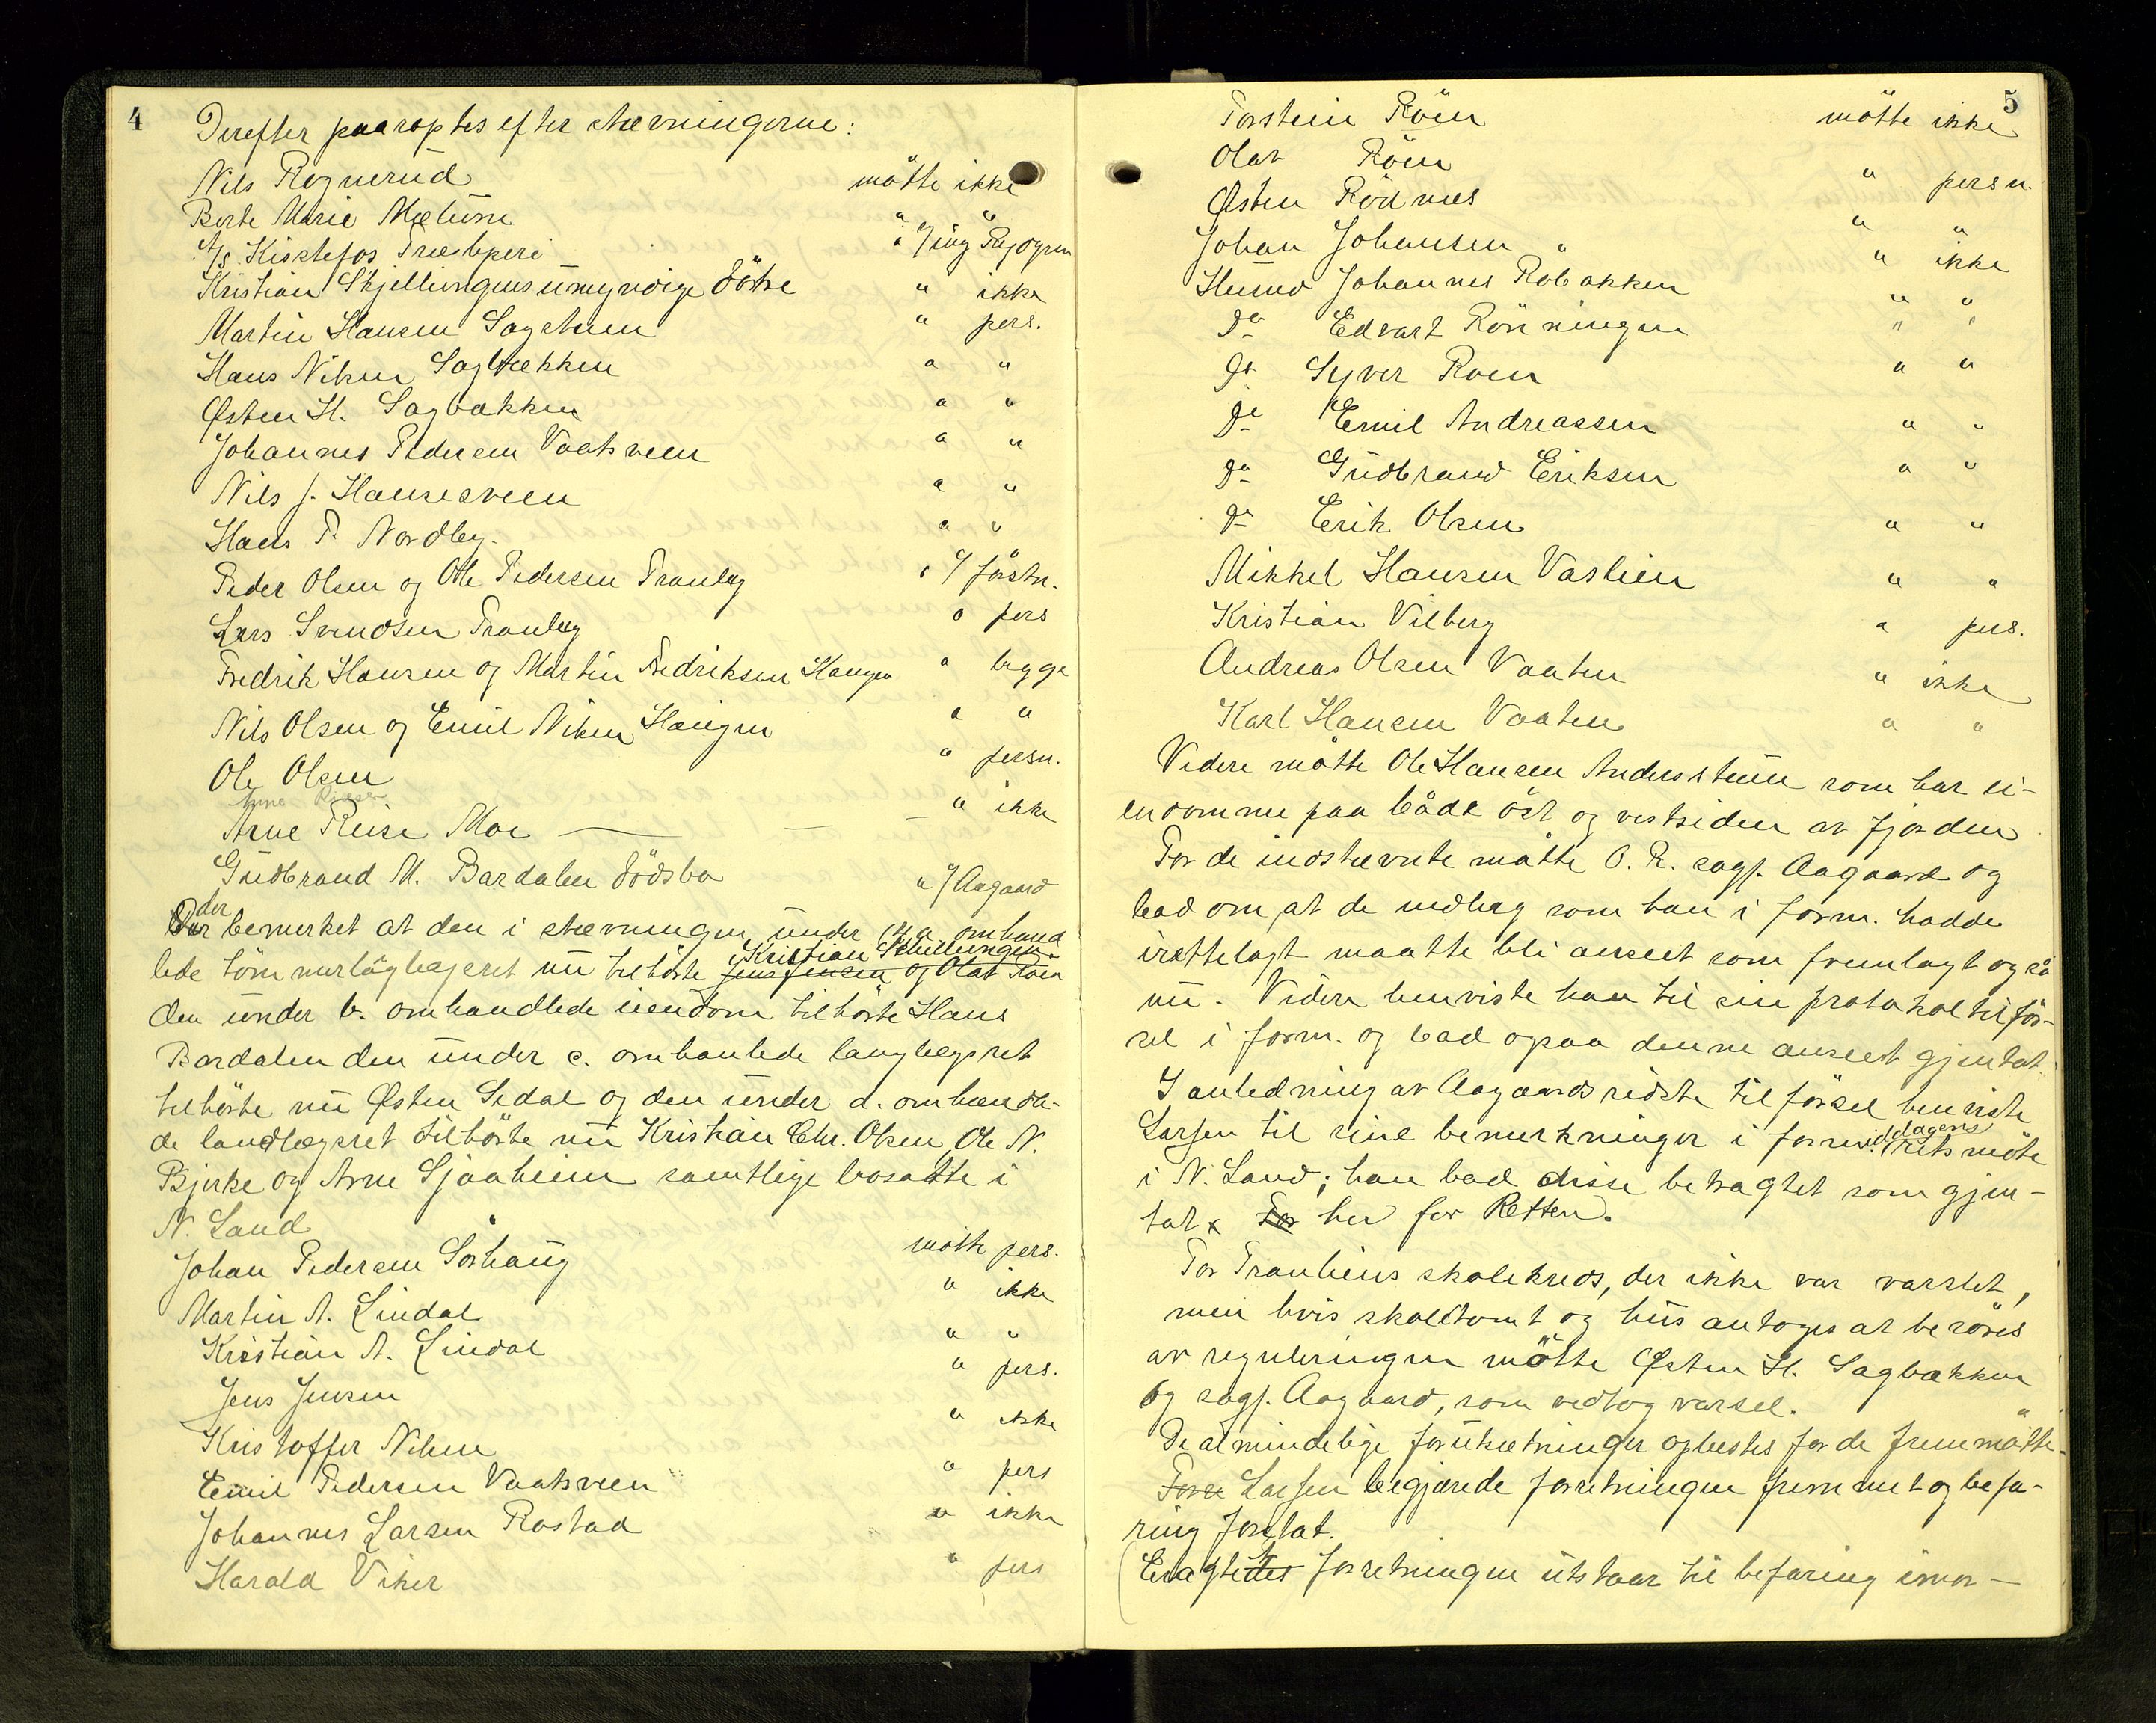 4
Derefter paaroptes efter stævningerne:
Nils Rognerud møtte ikke
Berte Marie Mælum " "
A/s Kistefos Træsliperi " v/ ing.
Kristian Skjellingens umyndige døtre " ikke
Martin Hansen Sagstuen " pers.
Hans Nilsen Sagbækken " "
Østen H. Sagbakken " "
Johannes Pedersen Vaatsveen " "
Nils J. Hansesveen " "
Hans P. Nordby. " "
Peder Olsen og Ole Pedersen Tranby " v/ førstn.
Lars Svendsen Tranby " pers
Fredrik Hansen og Martin Fredriksen Haugen " begge
Nils Olsen og Emil Nilsen Haugen " "
Ole Olsen " persn.
Arne Riise Moe — — — " ikke
Gudbrand M. Bardalen dødsbo " v/ Aagaard
der
bemerket at den i stævningen under 14 a. omhand
lede tömmerlägbegeret nu tilhörte Jens Jensen og Olav Röen Kristian Skjellingen
den under b. omhandlede eiendom tilhörte Hans
Bardalen den under c. omhanlede
tilhörte nu Østen Sedal og den under d. omhandle-
de tilhörte nu Kristian Chr. Olsen, Ole N.
Bjerke og Arne Sjaaheim samtlige bosatte i
N. Land
Johan Pedersen Sörhaug møtte pers.
Martin A. Lindal " ikke
Kristian A. Lindal " "
Jens Jensen " pers.
Kristoffer Nilsen " ikke
Emil Pedersen Vaatsveen " pers
Johannes Larsen Rostad " ikke
Harald Viker " pers
5
Torstein Röen mötte ikke
Olav Röen " persn.
Østen Rödnes " "
Johan Johansen " " ikke
Husmd Johannes Robakken " "
do Edvart Rönningen " "
do Syver Roen " "
do Emil Andreassen " "
do Gudbrand Eriksen " "
do Erik Olsen " "
Mikkel Hansen Vaslien " "
Kristian Vilberg " pers.
Andreas Olsen Vaaten " ikke
Karl Hansen Vaaten " "
Videre mötte Ole Hansen Andersstuen som har ei-
endomme paa både öst og vestsiden av fjorden
For de indstævnte møtte O. R. sagf. Aagaard og
bad om, at de vedlæg som han i form. hadde
irettelagt maatte bli anseet som fremlagt også
nu. Videre henviste han til sin protokoltilför-
sel i form. og bad ogsaa denne anseet gjentat.
I anledning av Aagaards sidste tilförsel henviste
Larsen til sine bemerkninger i formiddagens retsmöte
i N. Land; han bad disse betragtet som gjen-
tat For her for Retten.
For Tranliens skolekreds, der ikke var varslet,
men hvis skoletomt og hus antoges at beröres
av reguleringen mötte Østen H. Sagbakken
og sagf. Aagaard, som vedtog varsel.
De almindelige forutsetninger oplæstes for de fremmötte.
Larsen begjærede forretningen fremmet og befa-
ring foretat.
Eragtet forretningen utstaar til befaring imor-